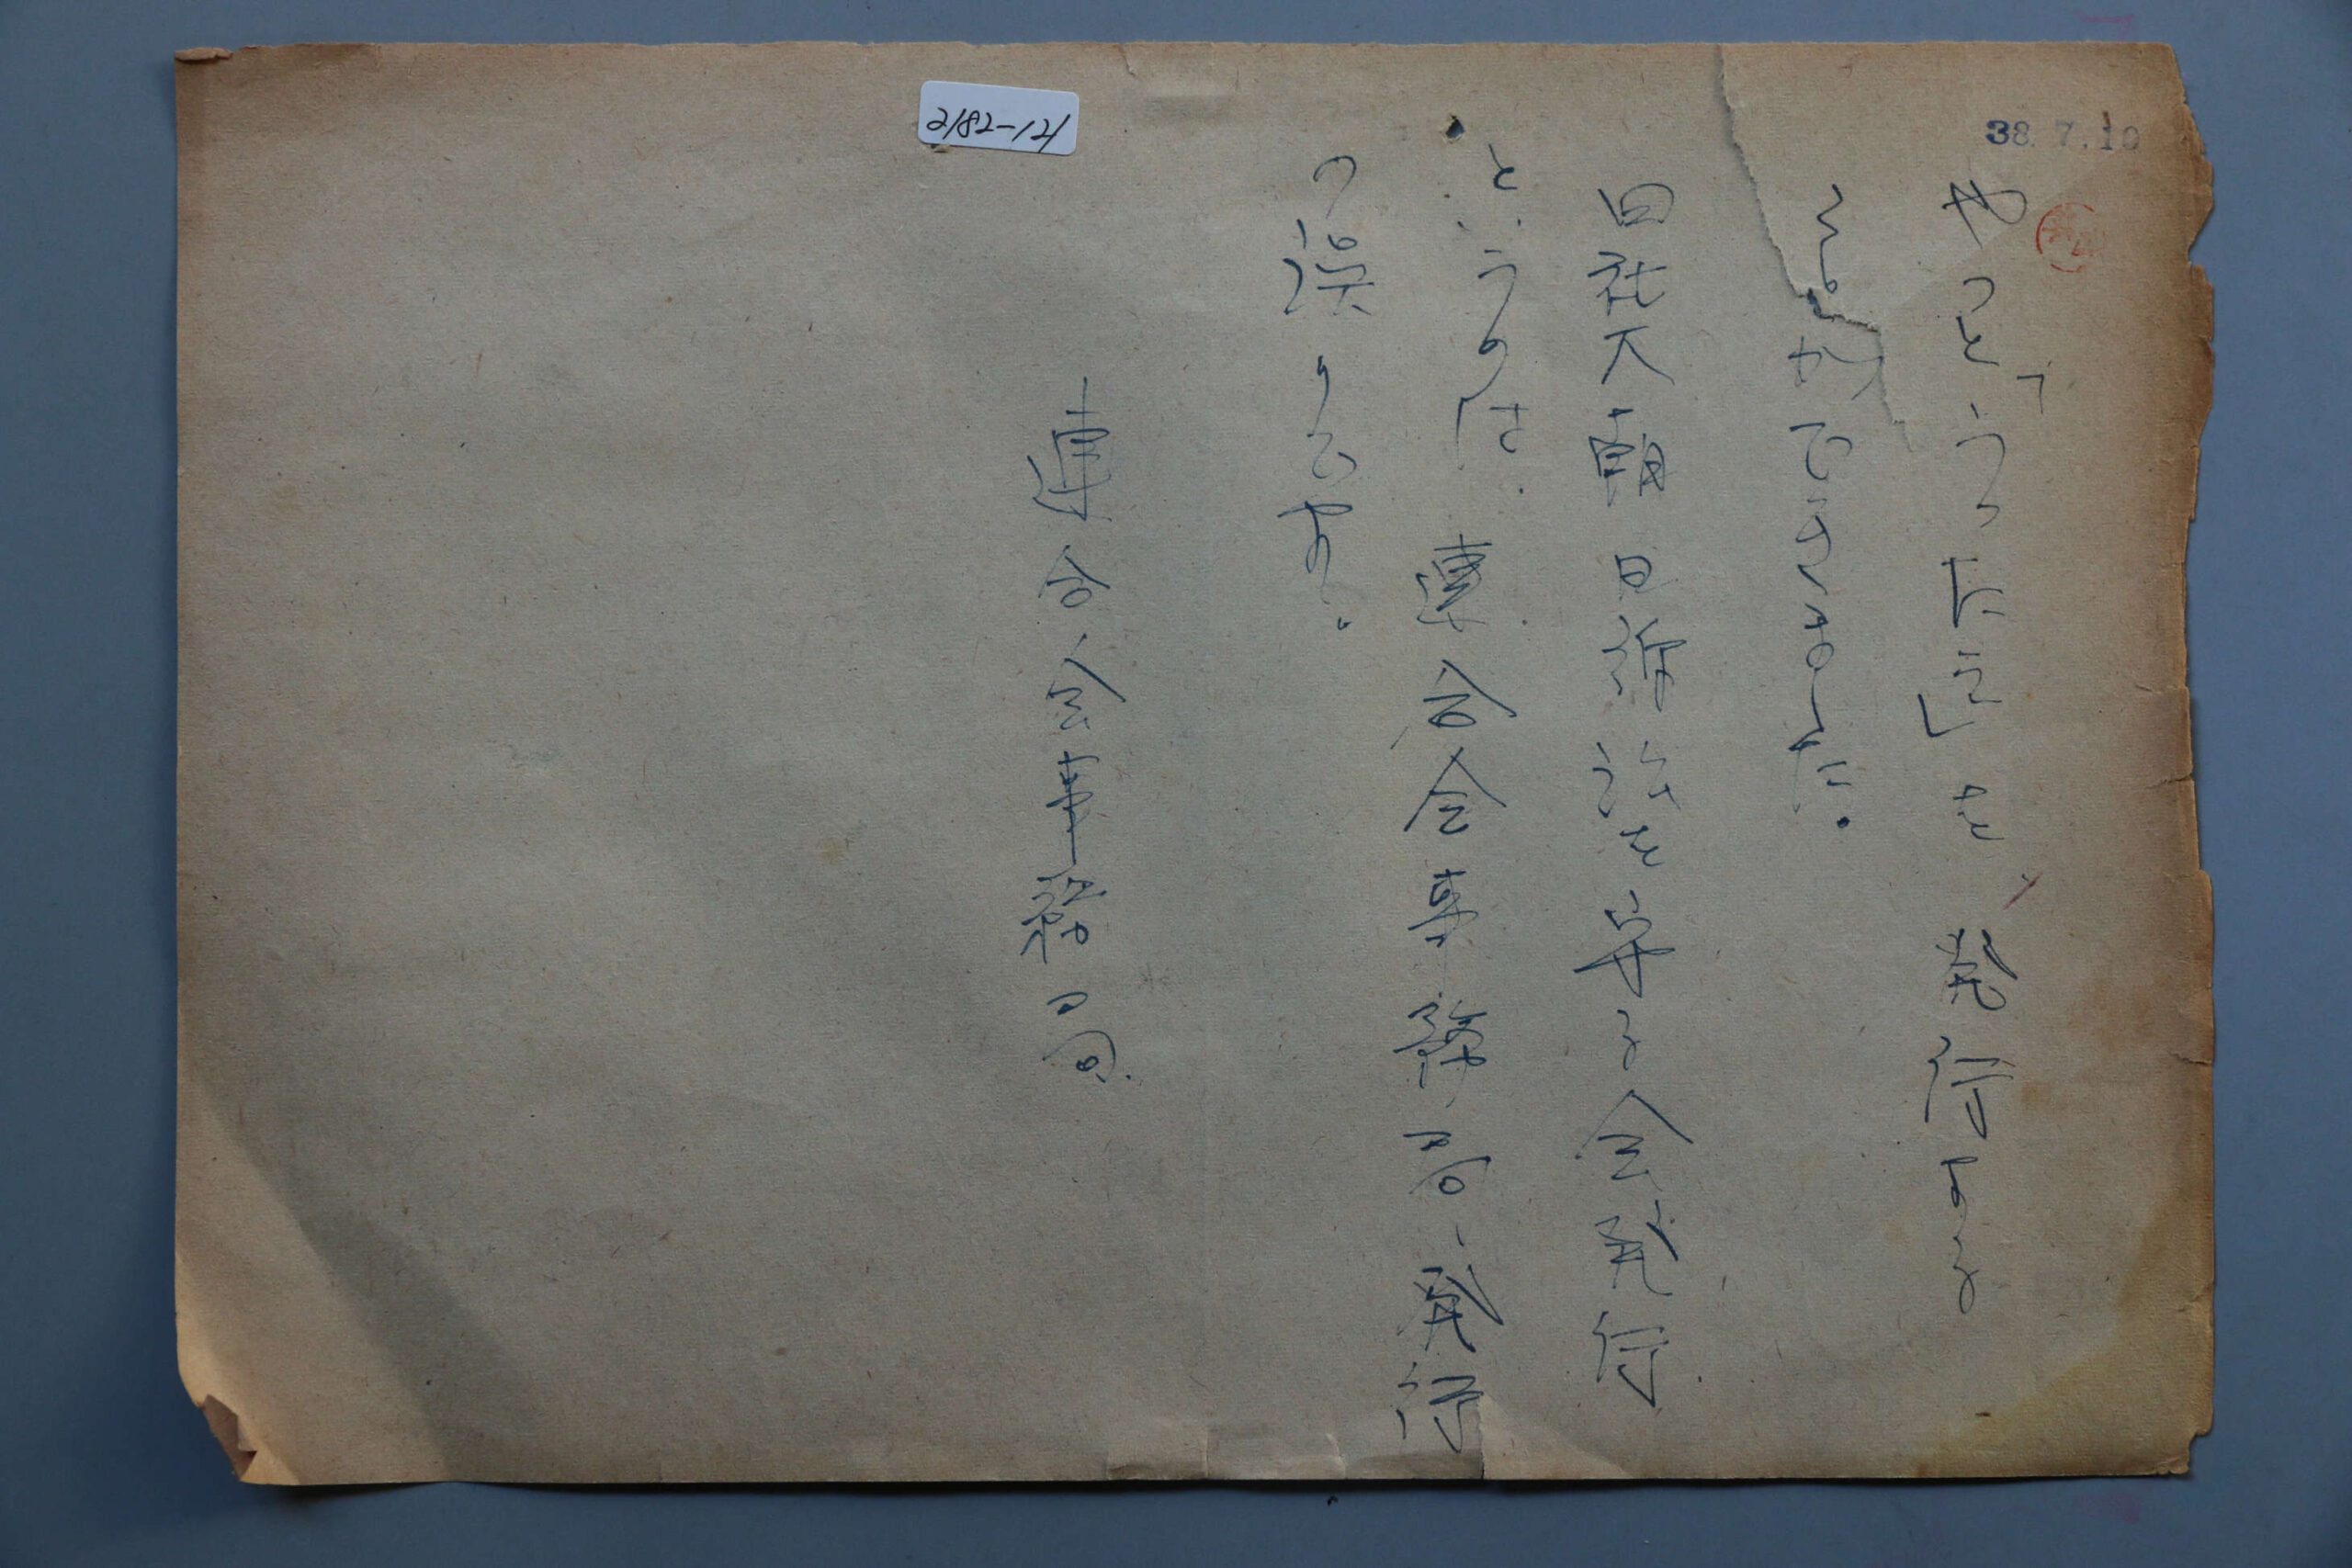 38.7.10
2182-121
やっと「うつ
を発行する
ことができました。
回社大朝日訴訟を守る会発行
というのは、連合会事務局、発行
の誤りです。
連合会事務局